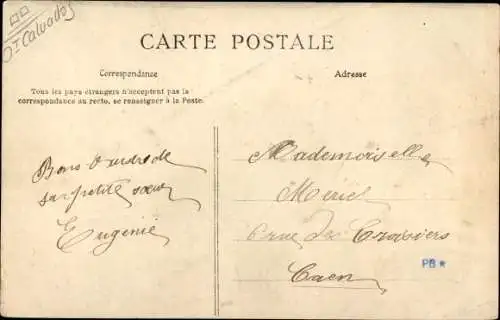 Dt Calvados
CARTE POSTALE
Correspondance
Adresse
Tous les pays étrangers n'acceptent pas la
correspondance au recto, se renseigner à la Poste.
Bons de
sa petite sœur
Eugénie
Mademoiselle
Mériel
rue des Croisiers
Caen
PB *